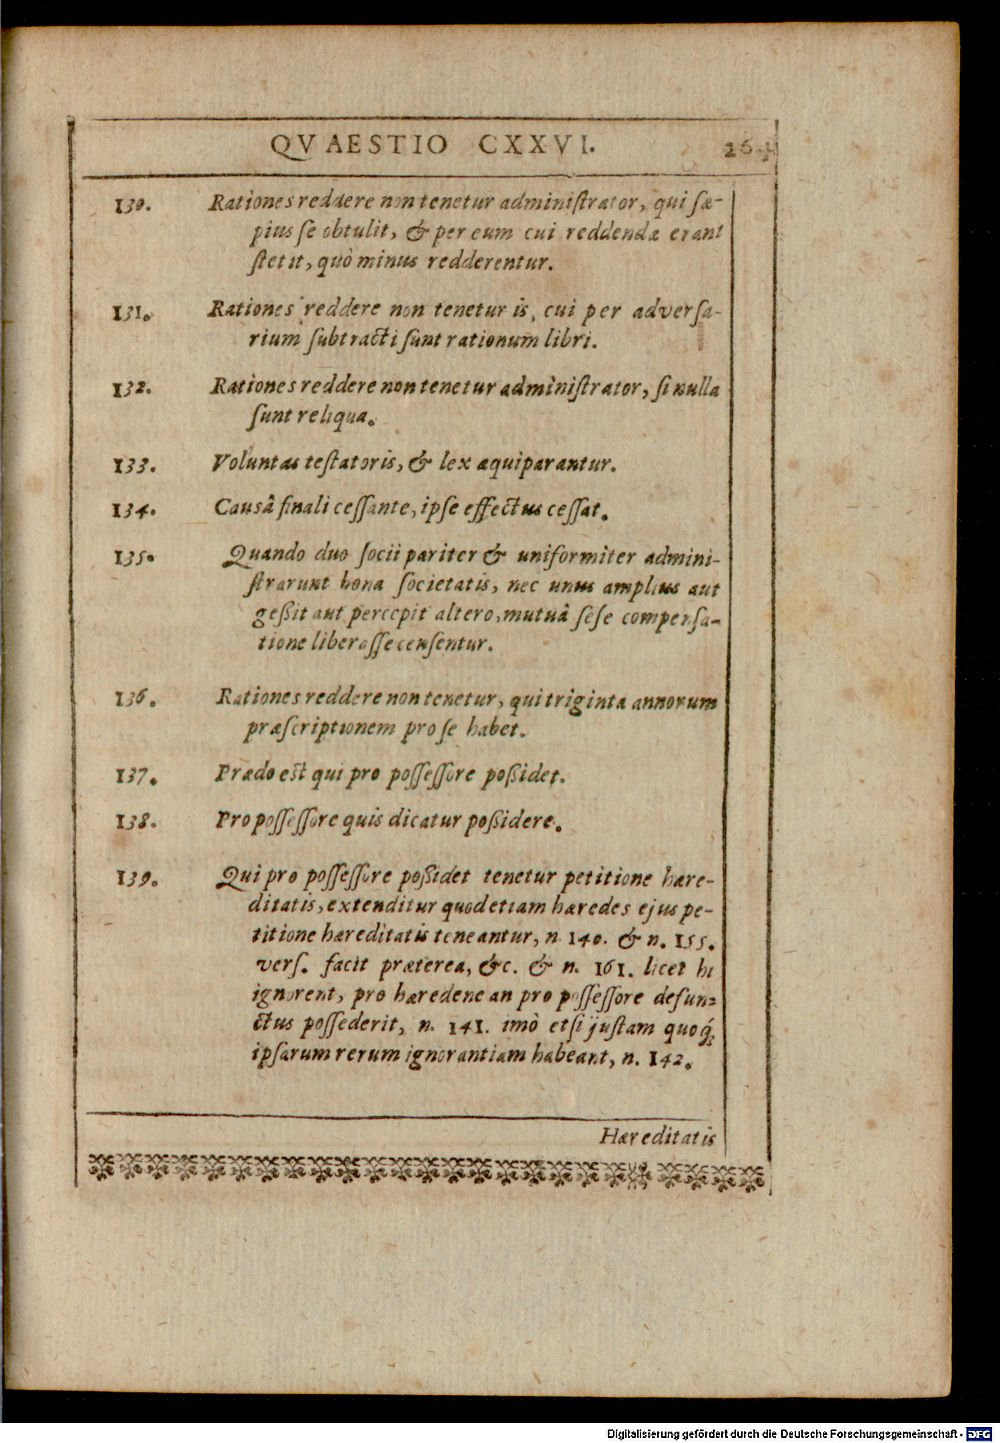 QVAESTIO CXXVI. 264
130. Rationes reddere non tenetur administrator, qui sæ-
pius se obtulit, & per eum cui reddendæ erant
stetit, quò minus redderentur.
131. Rationes reddere non tenetur is, cui per adversa-
rium subtracti sunt rationum libri.
132. Rationes reddere non tenetur administrator, si nulla
sunt reliqua.
133. Voluntas testatoris, & lex æquiparantur.
134. Causâ finali cessante, ipse effectus cessat.
135. Quando duo socii pariter & uniformiter admini-
strarunt bona societatis, nec unus amplius aut
geßit aut percepit altero, mutuâ sese compensa-
tione liberasse censentur.
136. Rationes reddere non tenetur, qui triginta annorum
præscriptionem pro se habet.
137. Prædo est qui pro possessore poßidet.
138. Pro possessore quis dicatur poßidere.
139. Qui pro possessore poßidet tenetur petitione hære-
ditatis, extenditur quod etiam hæredes ejus pe-
titione hæreditatis teneantur, n. 140. & n. 155.
vers. facit præterea, &c. & n. 161. licet hi
ignorent, pro hærede ne an pro possessore defun-
ctus possederit, n. 141. imò etsi justam quoq́;
ipsarum rerum ignorantiam habeant, n. 142.
Hæreditatis
Digitalisierung gefördert durch die Deutsche Forschungsgemeinschaft - DFG